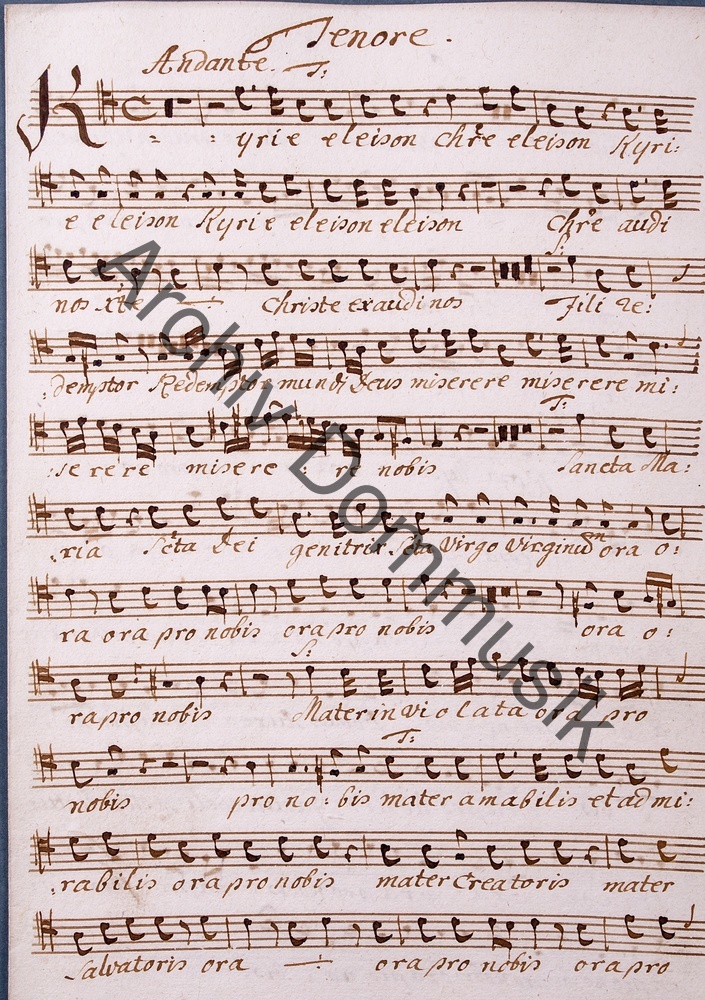 Tenore.
Andante. T:
K - - yrie eleison Chre eleison Kyri:
e eleison Kyrie eleison eleison Chre audi
S:
nos Xte -÷- Christe exaudi nos Fili Re:
:demptor Redemptor mundi Deus miserere miserere mi:
T:
:serere misere : re nobis Sancta Ma:
:ria Scta Dei genitrix Scta Virgo Virginum ora o:
ra ora pro nobis ora pro nobis ora o:
S:
ra pro nobis Mater inviolata ora pro
T:
nobis pro no : bis mater amabilis et admi:
:rabilis ora pro nobis mater Creatoris mater
Salvatoris ora -÷- ora pro nobis ora pro
Archiv Dommusik